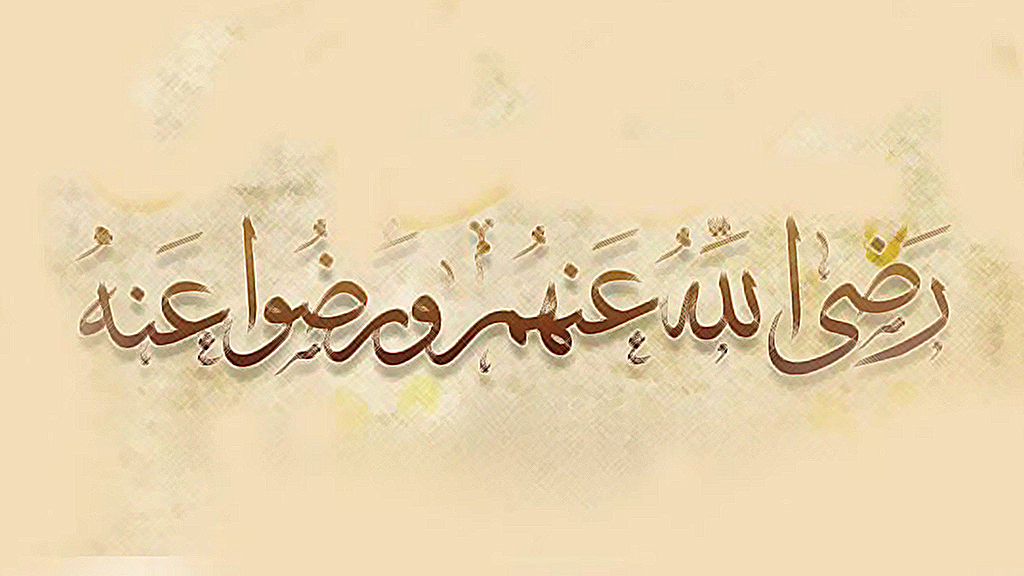 رَضِىَ اللَّهُ عَنْهُمْ وَرَضُوا عَنْهُ